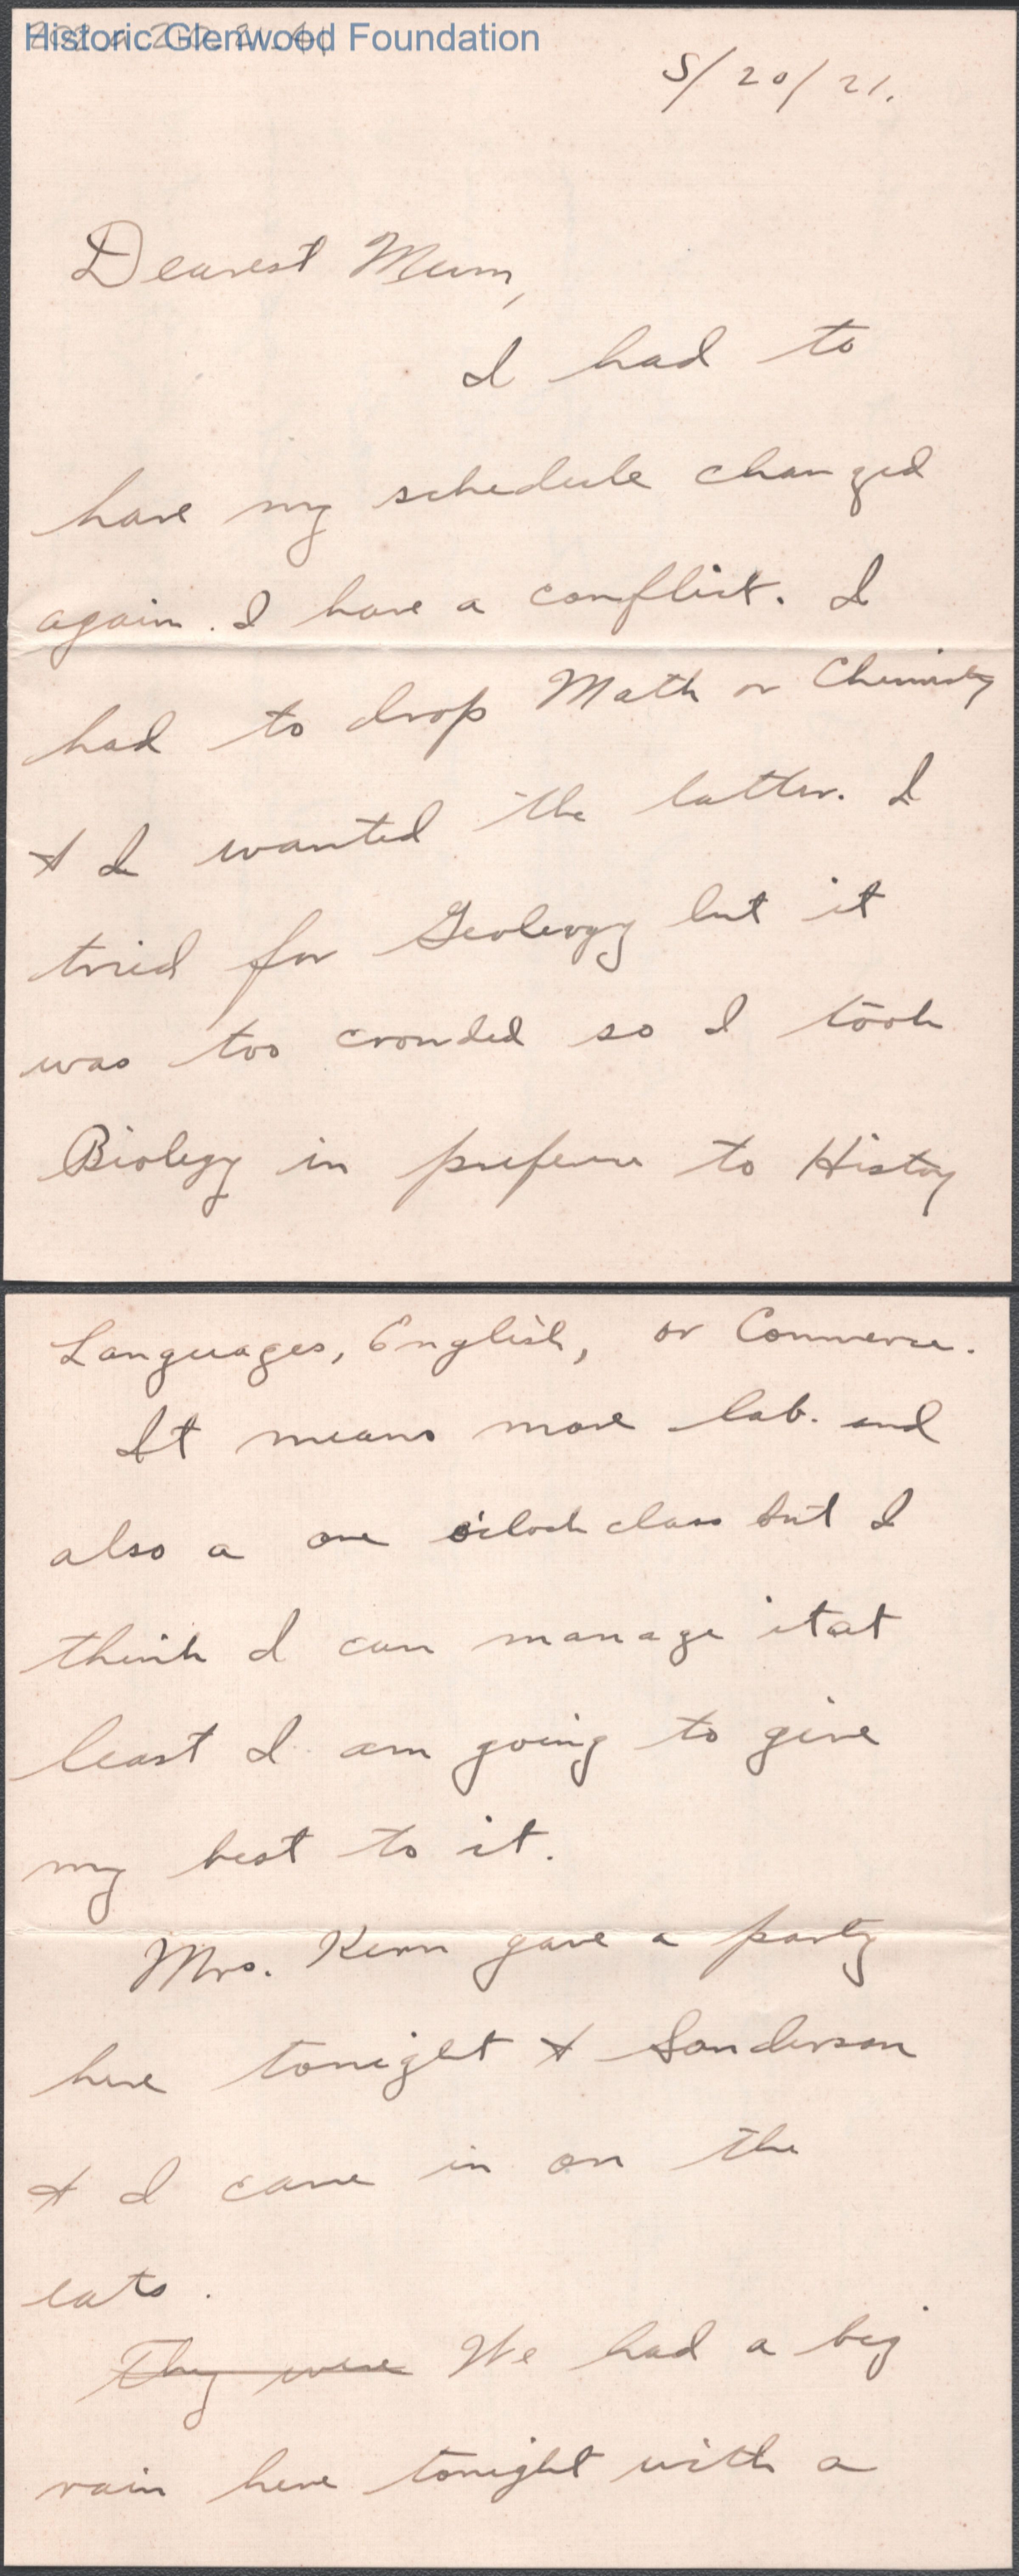 Historic Glenwood Foundation
5/20/21.
Dearest Mum,
I had to
have my schedule changed
again. I have a conflict. I
had to drop Math or Chemistry
& I wanted the latter. I
tried for Geology but it
was too crowded so I took
Biology in preference to History
Languages, English, or Commerce.
It means more lab. and
also a one o'clock class but I
think I can manage it at
least I am going to give
my best to it.
Mrs. Kern gave a party
here tonight & Sanderson
& I came in on the
eats.
They were We had a big
rain here tonight with a